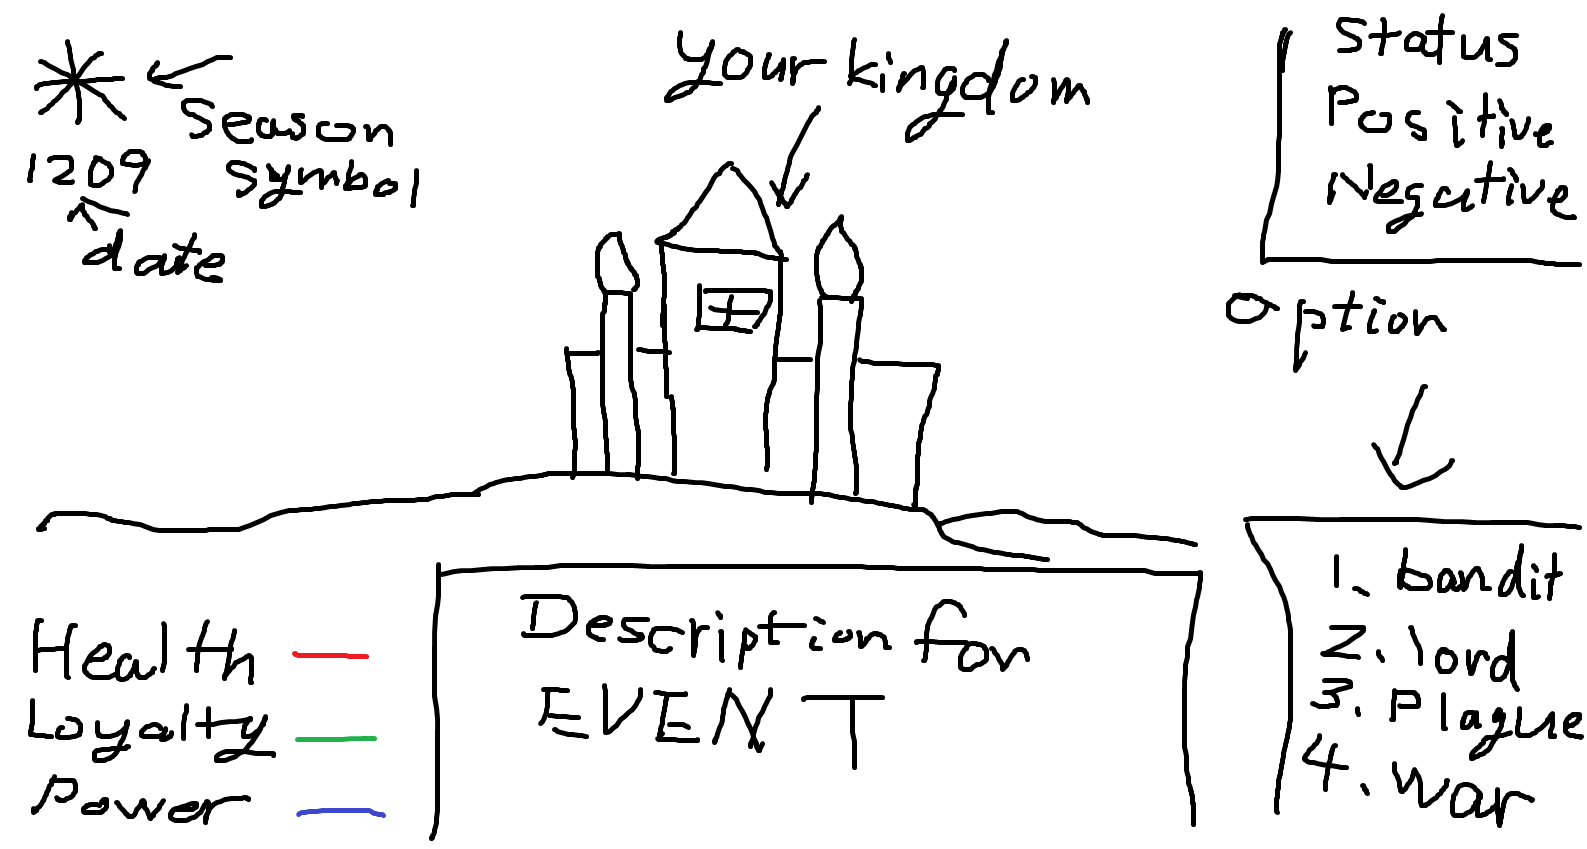 Season
symbol
1209
date
your kingdom
Status
Positive
Negative
Option
1. bandit
2. lord
3. Plague
4. war
Health
Loyalty
Power
Description for
EVENT